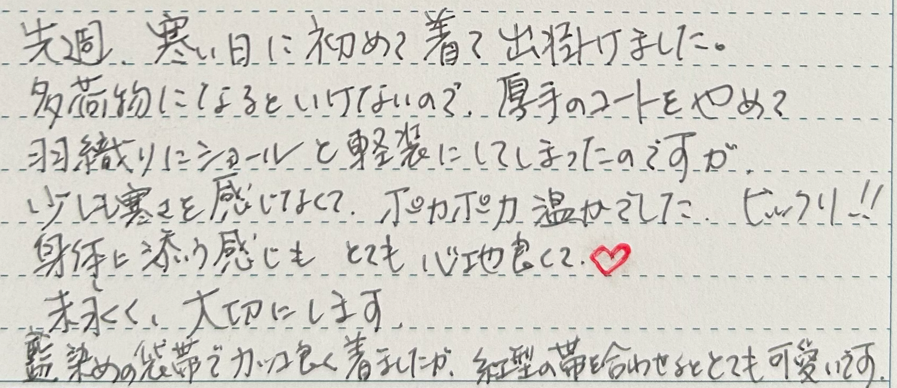 先週、寒い日に初めて着て出掛けました。
多荷物になるといけないので、厚手のコートをやめて
羽織りにショールと軽装にしてしまったのですが、
少しも寒さを感じなくて、ポカポカ温かでした。ビックリ!!
身体に添う感じも とても心地良くて、♡
末永く、大切にします。
藍染めの袋帯でカッコ良く着ましたが、紅型の帯を合わせるととても可愛いです。